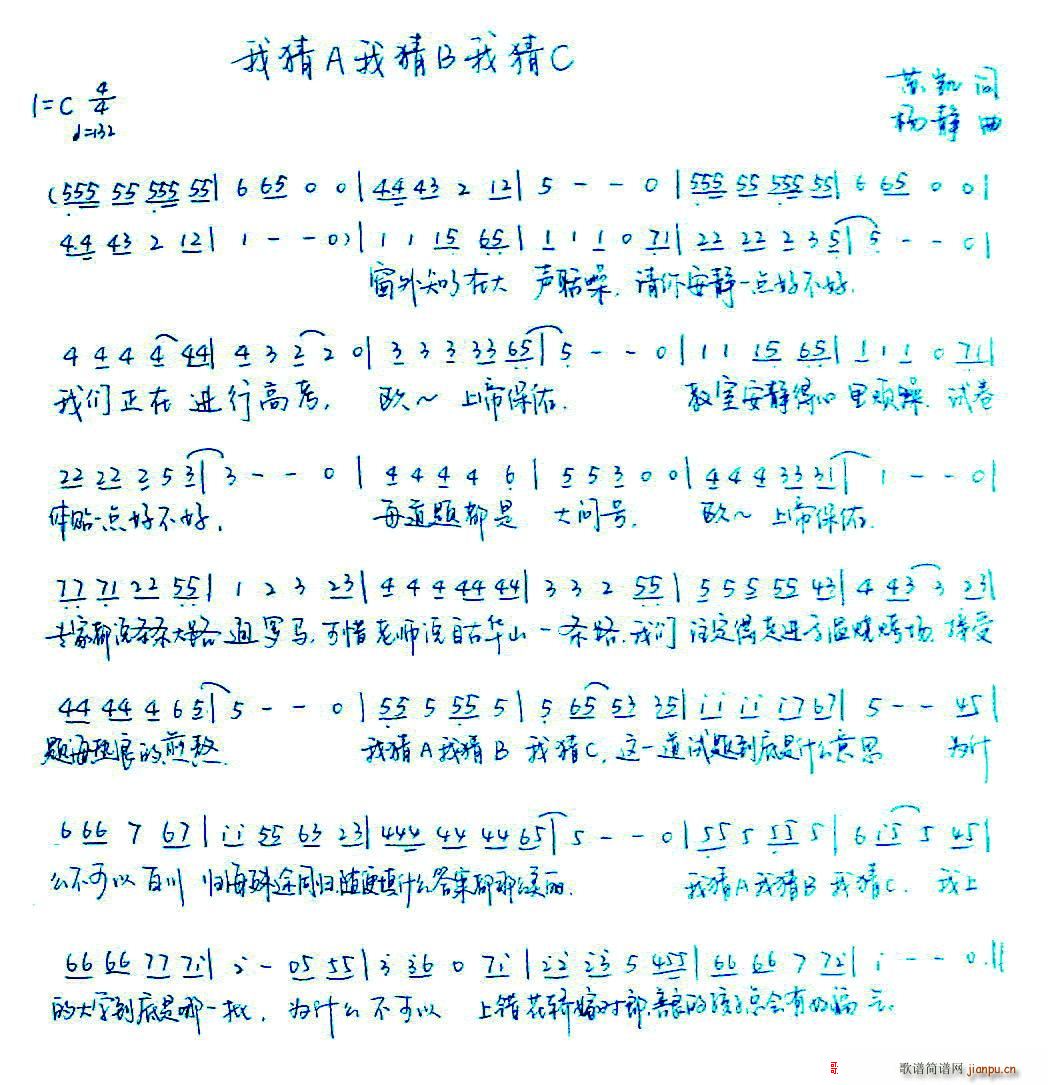 我猜A我猜B我猜C
1=C 4/4
♩=132
苏凯 词
杨静 曲
(555 55 555 55| 6 65 0 0| 44 43 2 12| 5 - - 0 |555 55 555 55| 6 65 0 0|
44 43 2 12| 1 - - 0)| 1 1 15 65| 1 1 1 0 71| 22 22 2 3 5| 5 - - 0|
窗外知了在大 声聒噪, 请你安静一点好不好.
4 4 4 4 44| 4 3 2 2 0| 3 3 3 33 65| 5 - - 0| 1 1 15 65| 1 1 1 0 71|
我们正在 进行高考, 欧～ 上帝保佑. 教室安静得心里烦躁. 试卷
22 22 2 5 3| 3 - - 0 | 4 4 4 4 6 | 5 5 3 0 0| 4 4 4 33 31| 1 - - 0|
体贴一点好不好, 每道题都是 大问号, 欧～ 上帝保佑.
77 71 22 55| 1 2 3 23| 4 4 4 44 44| 3 3 2 55| 5 5 5 55 43| 4 43 3 23|
专家都说条条大路 通罗马, 可惜老师说自古华山一条路. 我们 注定得走进高温烧烤场, 接受
44 44 4 6 5| 5 - - 0 | 55 5 55 5| 5 65 53 35| ii ii i7 67| 5 - - 45|
题海热浪的煎熬. 我猜A我猜B 我猜C, 这一道试题到底是什么意思 为什
6 66 7 67| ii 55 63 23| 444 44 44 65| 5 - - 0| 55 5 55 5| 6 i5 5 45|
么不可以百川 归海殊途同归, 随便填什么答案都那么美丽. 我猜A我猜B 我猜C, 我上
66 66 77 7i| 2 - 05 55| 3 36 0 7i| 22 23 5 455| 66 66 7 72| i - - 0.||
的大学到底是哪一批, 为什么不可以 上错花轿嫁对郎, 善良的孩子总会有好福气.
歌谱简谱网 jianpu.cn